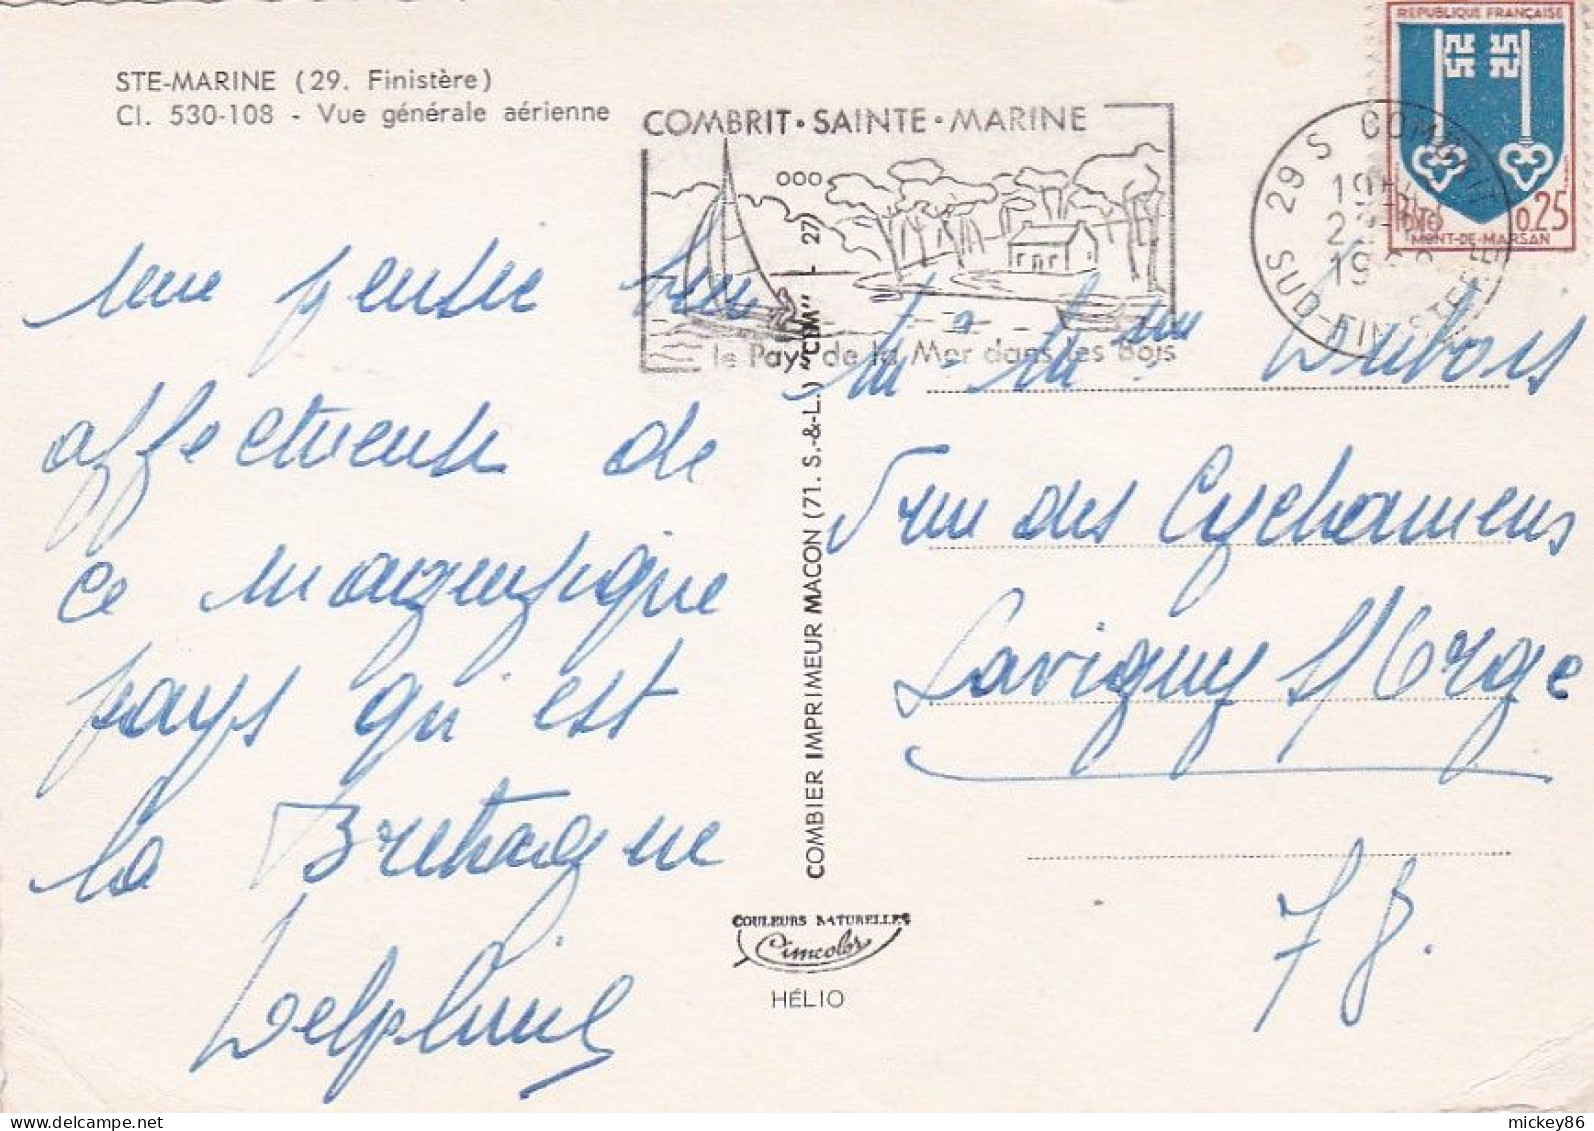 STE-MARINE (29. Finistère)
Cl. 530-108 - Vue générale aérienne
COMBRIT • SAINTE • MARINE
le Pays de la Mer dans les Bois
29 S COMBRIT
SUD-FINISTERE
REPUBLIQUE FRANÇAISE
0,25
MONT-DE-MARSAN
une pensée
affectueuse de
ce magnifique
pays qu'est
la Bretagne
Delphine
COMBIER IMPRIMEUR MACON (71. S.-&-L.) "CIM" - 27
COULEURS NATURELLES
Cimcolor
HÉLIO
M. Mme Dubois
rue des Cychamens
Savigny s/ Orge